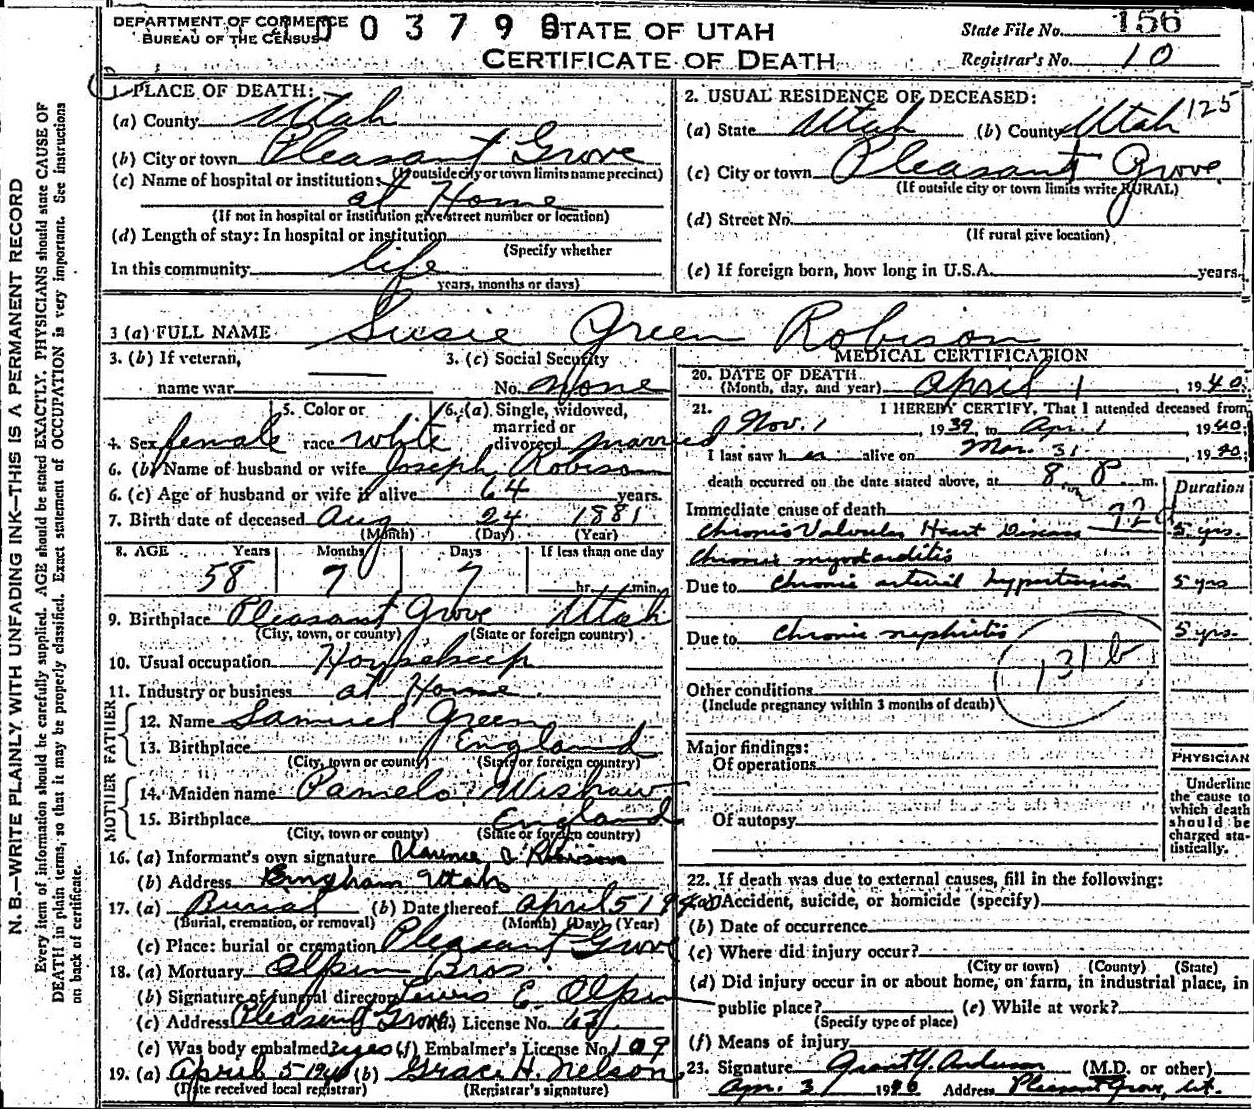 DEPARTMENT OF COMMERCE
BUREAU OF THE CENSUS
0 0 3 7 9 8
STATE OF UTAH
CERTIFICATE OF DEATH
State File No. 156
Registrar's No. 10
N. B.—WRITE PLAINLY WITH UNFADING INK—THIS IS A PERMANENT RECORD
Every item of information should be carefully supplied. AGE should be stated EXACTLY. PHYSICIANS should state CAUSE OF
DEATH in plain terms, so that it may be properly classified. Exact statement of OCCUPATION is very important. See instructions
on back of certificate.
1. PLACE OF DEATH:
(a) County Utah
(b) City or town Pleasant Grove
(If outside city or town limits name precinct)
(c) Name of hospital or institution:
at Home
(If not in hospital or institution give street number or location)
(d) Length of stay: In hospital or institution
(Specify whether
In this community life
years, months or days)
2. USUAL RESIDENCE OF DECEASED:
125
(a) State Utah (b) County Utah
(c) City or town Pleasant Grove
(If outside city or town limits write RURAL)
(d) Street No.
(If rural give location)
(e) If foreign born, how long in U.S.A. years.
3 (a) FULL NAME Susie Green Robison
3. (b) If veteran, name war
3. (c) Social Security No. None
4. Sex female
5. Color or race white
6. (a) Single, widowed, married or divorced married
6. (b) Name of husband or wife Joseph Robison
6. (c) Age of husband or wife if alive 64 years.
7. Birth date of deceased Aug 24 1881
(Month) (Day) (Year)
8. AGE Years Months Days If less than one day
58 7 7 hr. min.
9. Birthplace Pleasant Grove Utah
(City, town, or county) (State or foreign country)
10. Usual occupation Housekeep
11. Industry or business at Home
FATHER
12. Name Samuel Green
13. Birthplace England
(City, town or county) (State or foreign country)
MOTHER
14. Maiden name Pamelo Wishaw
15. Birthplace England
(City, town or county) (State or foreign country)
16. (a) Informant's own signature Clarence J. Robison
(b) Address Bingham Utah
17. (a) Burial (b) Date thereof April 5 1940
(Burial, cremation, or removal) (Month) (Day) (Year)
(c) Place: burial or cremation Pleasant Grove
18. (a) Mortuary Olpin Bros.
(b) Signature of funeral director Lewis E. Olpin
(c) Address Pleasant Grove (d.) License No. 63
(e) Was body embalmed? yes (f) Embalmer's License No. 109
19. (a) April 5 1940 (b) Grace H. Nelson
(Date received local registrar) (Registrar's signature)
MEDICAL CERTIFICATION
20. DATE OF DEATH
(Month, day, and year) April 1 1940.
21. I HEREBY CERTIFY, That I attended deceased from
Nov. 1, 1939 to Apr. 1 1940
I last saw her alive on Mar. 31, 1940.
death occurred on the date stated above, at 8 P m.
Duration
Immediate cause of death 92d
Chronic Valvular Heart Disease 5 yrs.
Chronic myocarditis
Due to Chronic arterial hypertension 5 yrs
Due to Chronic nephritis 5 yrs.
131 b
Other conditions
(Include pregnancy within 3 months of death)
Major findings:
Of operations
Of autopsy
PHYSICIAN
Underline
the cause to
which death
should be
charged sta-
tistically.
22. If death was due to external causes, fill in the following:
(a) Accident, suicide, or homicide (specify)
(b) Date of occurrence
(c) Where did injury occur?
(City or town) (County) (State)
(d) Did injury occur in or about home, on farm, in industrial place, in
public place? (e) While at work?
(Specify type of place)
(f) Means of injury
23. Signature Grant Y. Anderson (M.D. or other)
Apr. 3 1940 Address Pleasant Grove, Ut.